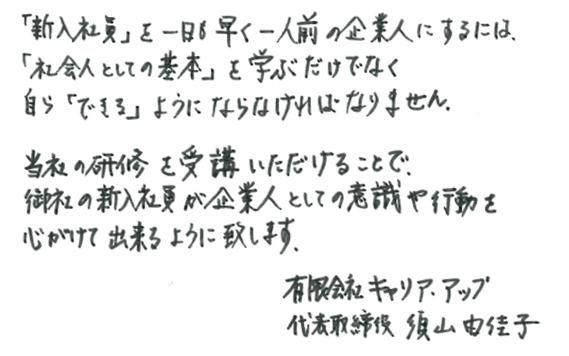 「新入社員」を一日も早く一人前の企業人にするには、
「社会人としての基本」を学ぶだけでなく
自ら「できる」ようにならなければなりません。
当社の研修を受講いただけることで、
御社の新入社員が企業人としての意識や行動を
心がけて出来るように致します。
有限会社キャリア・アップ
代表取締役 須山由佳子